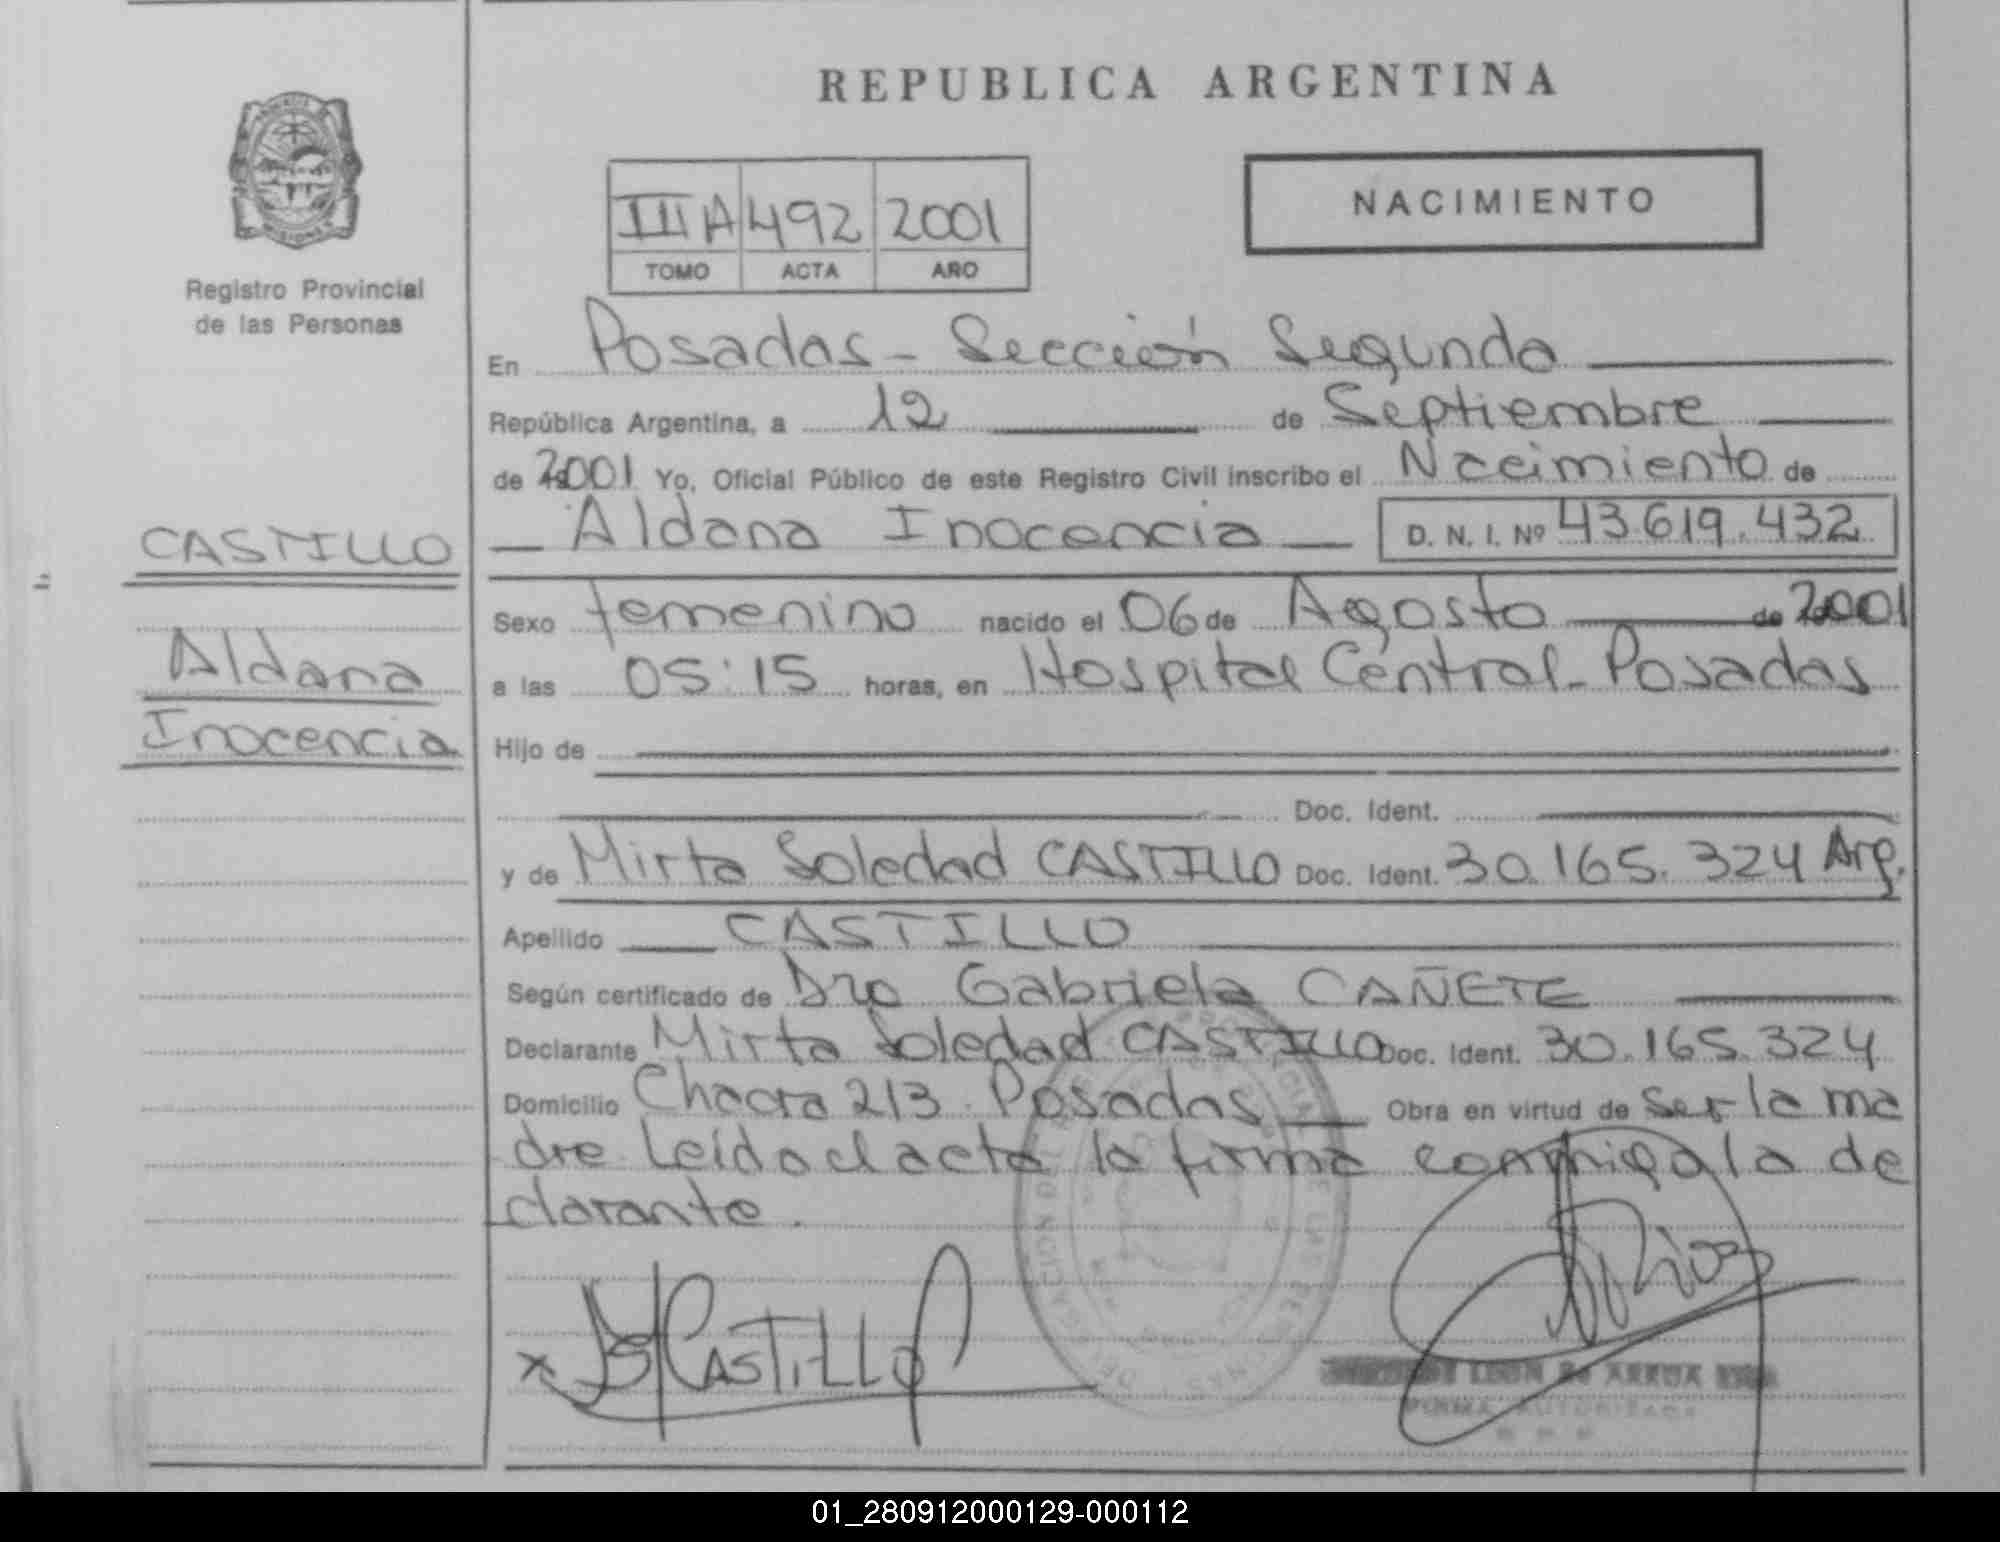 REPUBLICA ARGENTINA
NACIMIENTO
IIIA 492 2001
TOMO ACTA AÑO
MISIONES
Registro Provincial
de las Personas
CASTILLO
Aldana
Inocencia
En Posadas - Sección Segunda
República Argentina, a 12 de Septiembre
de 2001 Yo, Oficial Público de este Registro Civil inscribo el Nacimiento de
Aldana Inocencia D. N. I. Nº 43.619.432
Sexo femenino nacido el 06 de Agosto de 2001
a las 05:15 horas, en Hospital Central - Posadas
Hijo de
Doc. Ident.
y de Mirta Soledad CASTILLO Doc. Ident. 30.165.324 Arg.
Apellido CASTILLO
Según certificado de Dra Gabriela CAÑETE
Declarante Mirta Soledad CASTILLO Doc. Ident. 30.165.324
Domicilio Chacra 213 - Posadas Obra en virtud de ser la ma
dre. Leída el acta la firma conmigo la de
clarante.
x CASTILLO
FIRMA AUTORIZADA
01_280912000129-000112